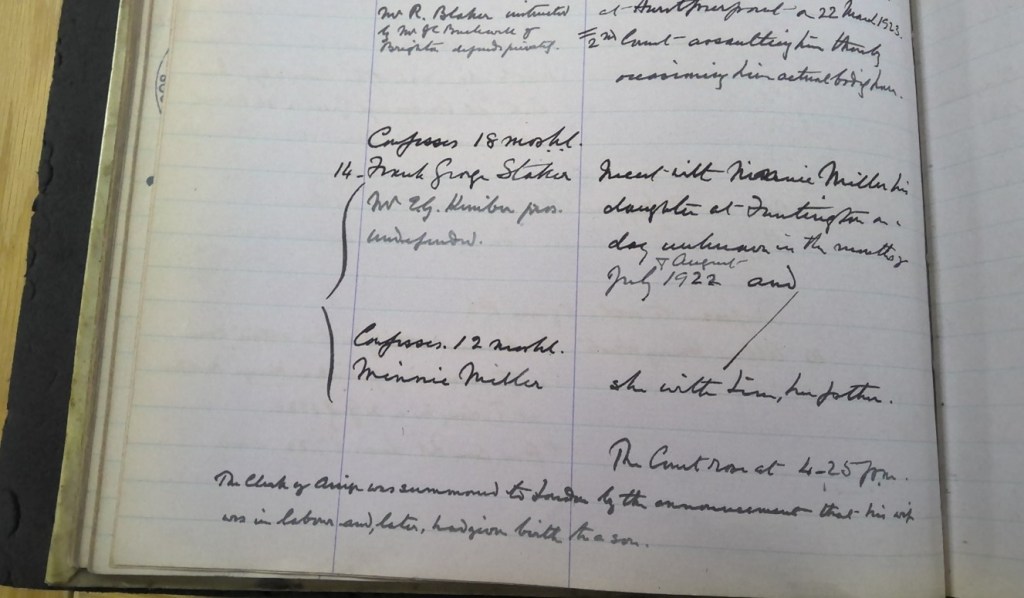 Mr R. Blaker instructed
by Mr J.E. Bucknell of
Brighton defends privately.
at Hurstpierpoint on 22 March 1923.
2nd Count - assaulting him thereby
occasioning him actual bodily harm.
Confesses 18 mos h.l.
14. Frank George Staker
Mr Kimber pros.
undefended.
Incest with Minnie Miller his
daughter at Funtington on a
day unknown in the months of
July & August 1922 and
Confesses. 12 mos h.l.
Minnie Miller
she with him, her father.
The Court rose at 4-25 p.m.
The Clerk of Assize was summoned to London by the announcement that his wife
was in labour and, later, had given birth to a son.